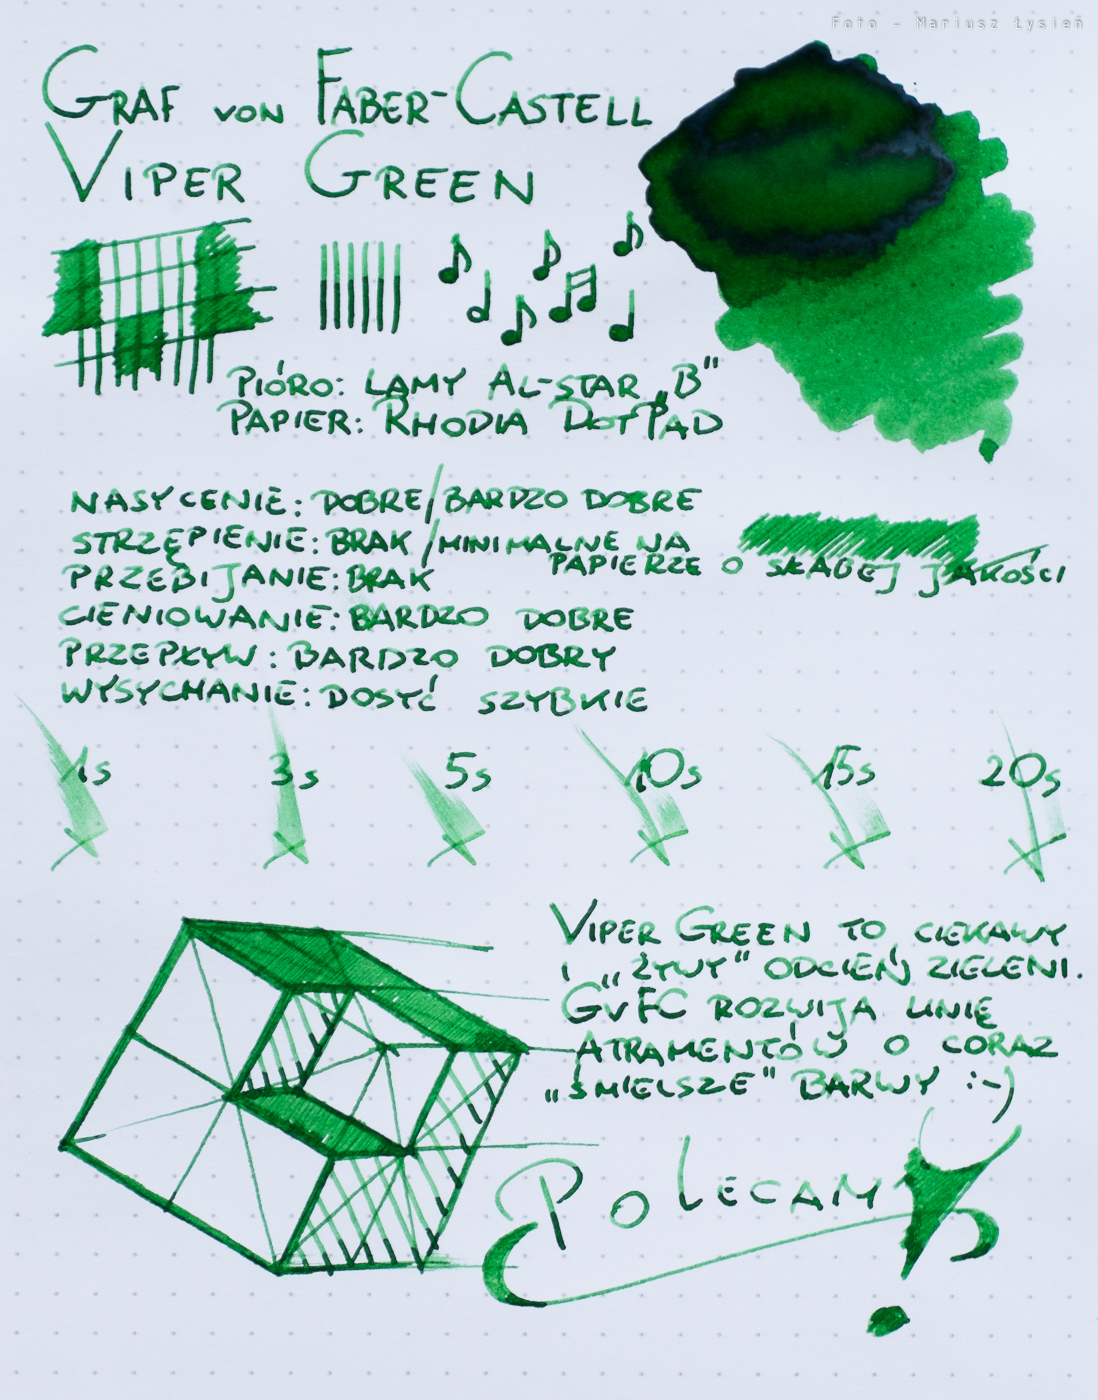 Foto - Mariusz Łysień
GRAF VON FABER-CASTELL
VIPER GREEN
PIÓRO: LAMY AL-STAR „B"
PAPIER: RHODIA DOTPAD
NASYCENIE: DOBRE/BARDZO DOBRE
STRZĘPIENIE: BRAK/MINIMALNE NA
PAPIERZE O SŁABEJ JAKOŚCI
PRZEBIJANIE: BRAK
CIENIOWANIE: BARDZO DOBRE
PRZEPŁYW: BARDZO DOBRY
WYSYCHANIE: DOSYĆ SZYBKIE
1s 3s 5s 10s 15s 20s
VIPER GREEN TO CIEKAWY
I „ŻYWY" ODCIEŃ ZIELENI.
GVFC ROZWIJA LINIĘ
ATRAMENTÓW O CORAZ
„ŚMIELSZE" BARWY :-)
POLECAM!